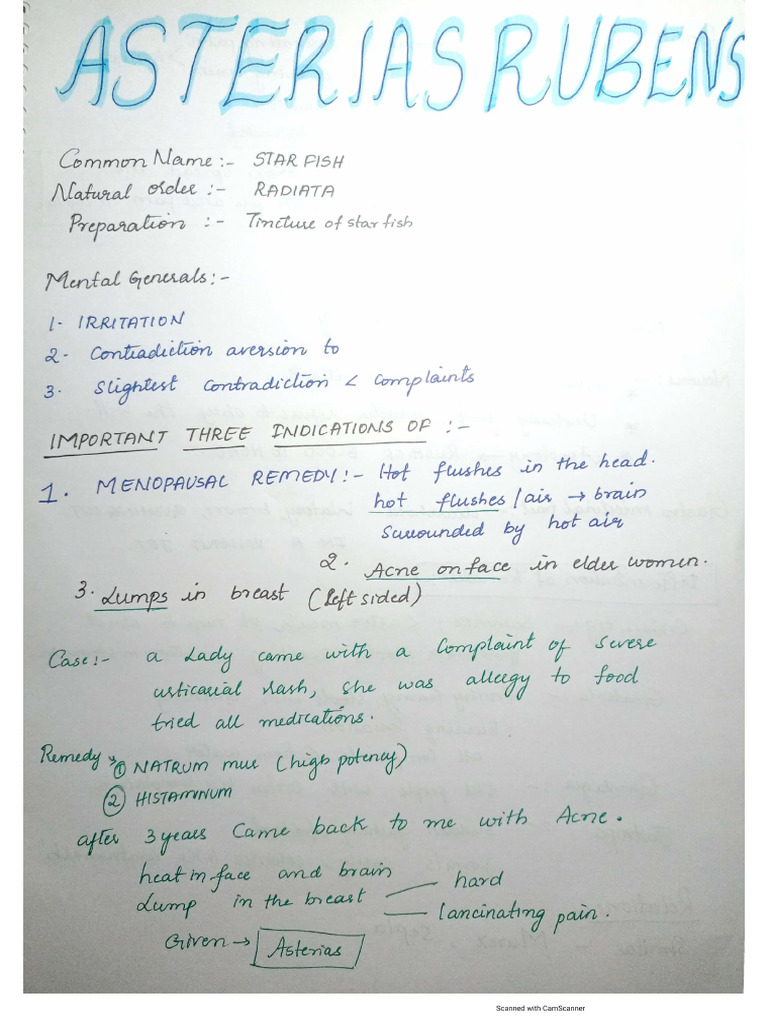 ASTERIAS RUBENS
Common Name :- STAR FISH
Natural order :- RADIATA
Preparation :- Tincture of star fish
Mental Generals :-
1- IRRITATION
2- Contradiction aversion to
3. Slightest contradiction < complaints
IMPORTANT THREE INDICATIONS OF :-
1. MENOPAUSAL REMEDY :- Hot flushes in the head.
hot flushes / air → brain
Surrounded by hot air
2. Acne on face in elder women.
3. Lumps in breast (left sided)
Case :- a Lady came with a complaint of severe
urticarial rash, she was allergy to food
tried all medications.
Remedy → ① NATRUM mur (high potency)
② HISTAMINUM
after 3 years Came back to me with Acne.
heat in face and brain
Lump in the breast — hard
— lancinating pain.
Given → Asterias
Scanned with CamScanner